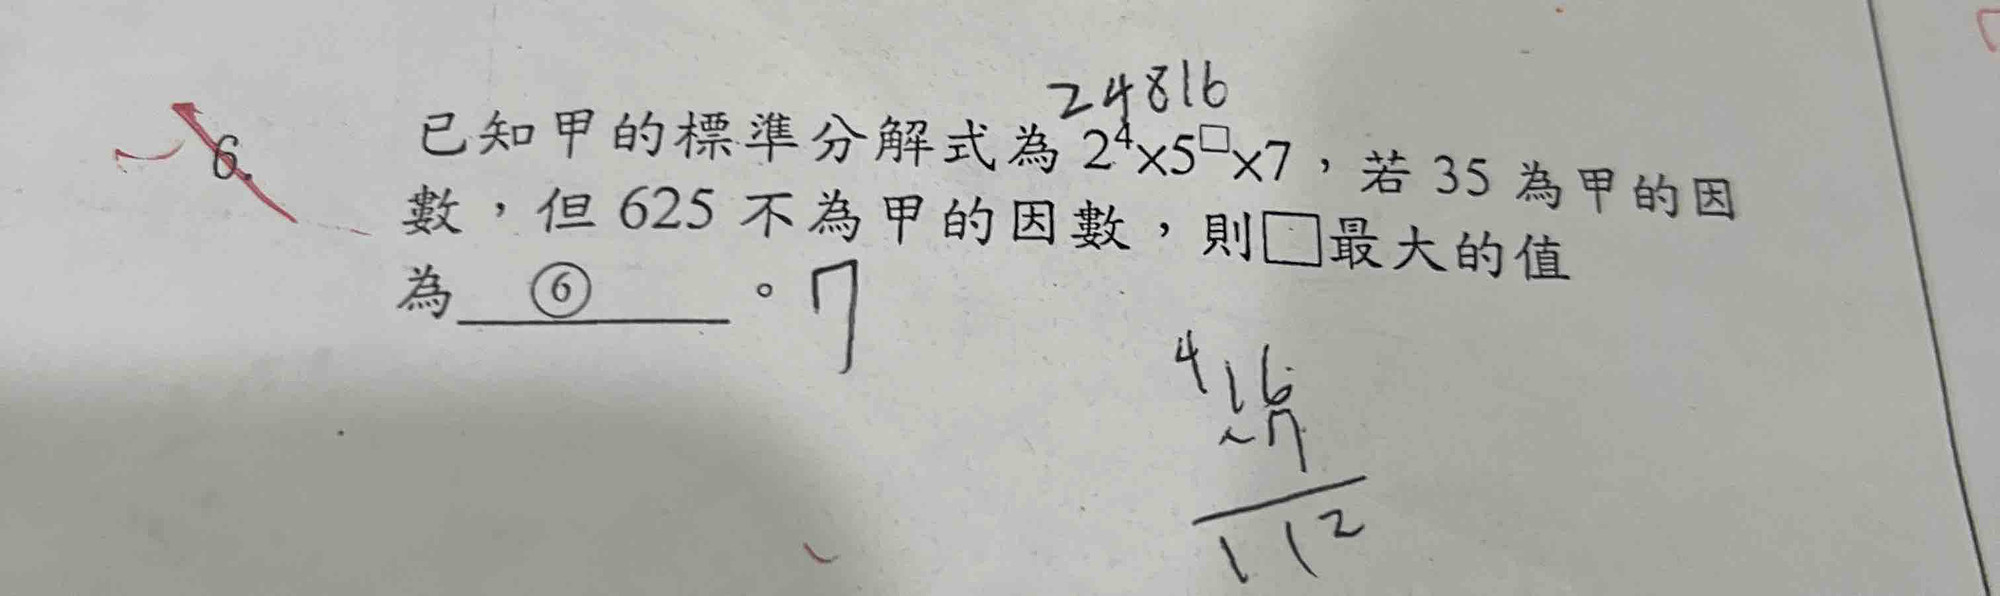 24816
6. 已知甲的標準分解式為 2⁴×5□×7，若 35 為甲的因
數，但 625 不為甲的因數，則□最大的值
為 ⑥ 。7
4 16
×7
112